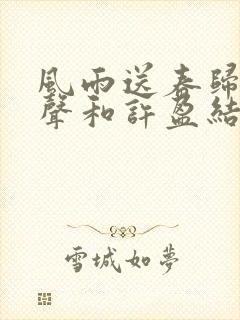 風雨送春歸
聲和許盈結
雪城如夢